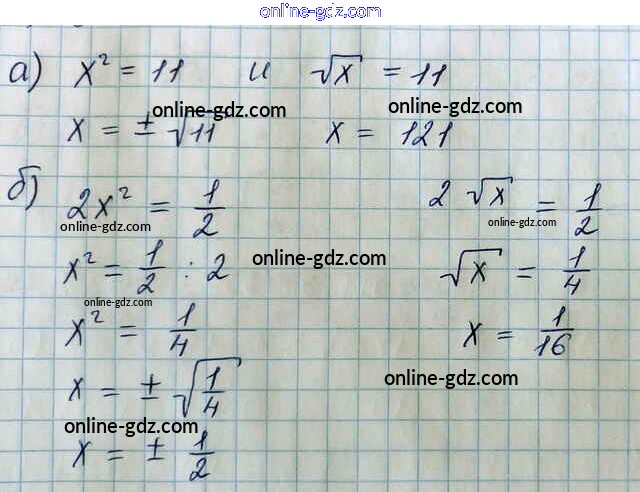 online-gdz.com
а) x² = 11 и √x = 11
online-gdz.com online-gdz.com
x = ± √11 x = 121
б) 2x² = 1/2 2 √x = 1/2
online-gdz.com online-gdz.com
x² = 1/2 : 2 √x = 1/4
online-gdz.com
online-gdz.com
x² = 1/4 x = 1/16
x = ± √1/4
online-gdz.com
online-gdz.com
x = ± 1/2